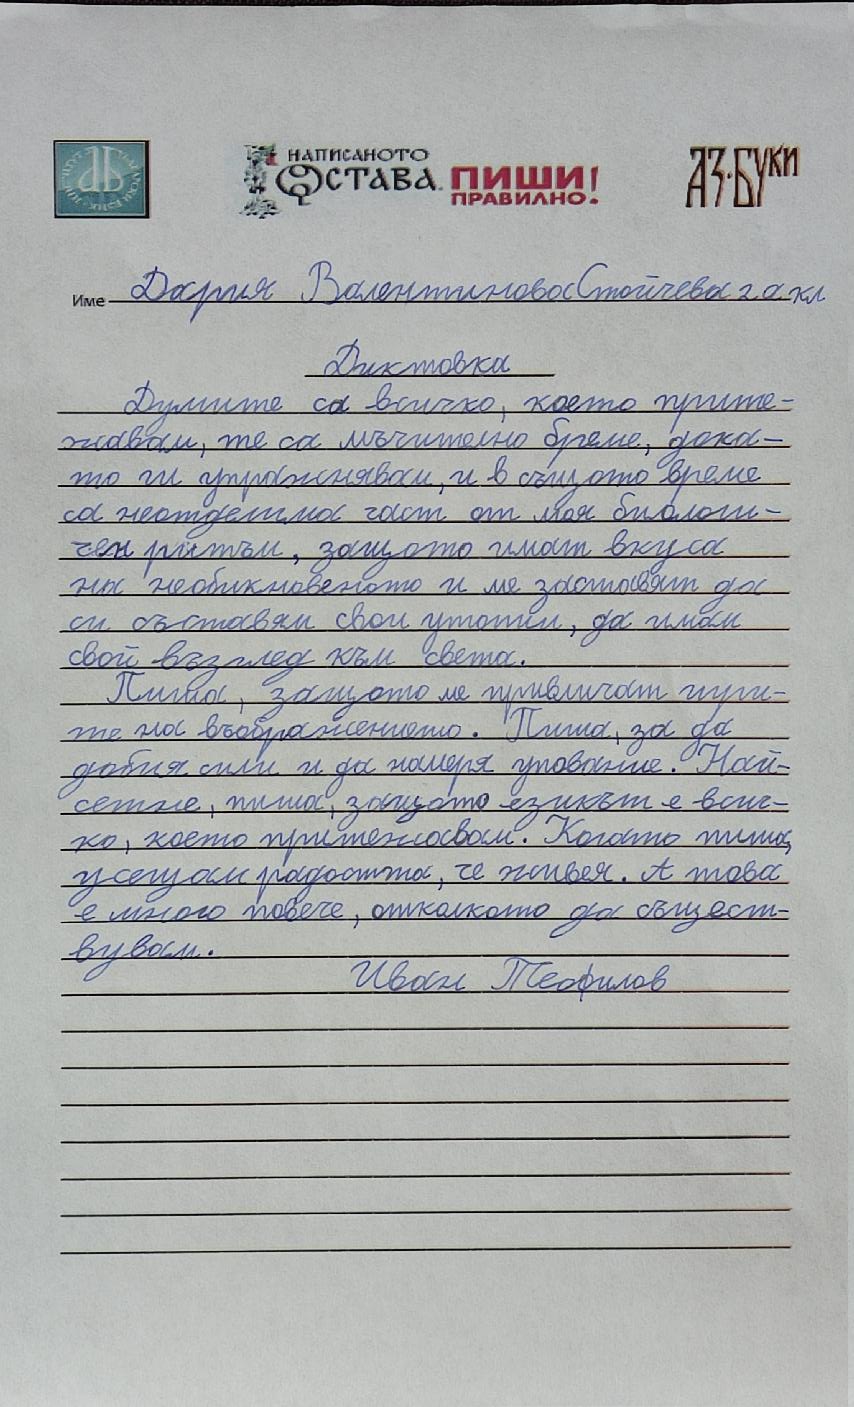 НАПИСАНОТО
ОСТАВА. ПИШИ!
ПРАВИЛНО.
АЗ·БУКИ
Име Дария Валентинова Стойчева 2 а кл
Диктовка
Думите са всичко, което прите-
жавам, те са мъчително бреме, дока-
то ги упражнявам, и в същото време
са неотделима част от моя биологи-
чен ритъм, защото имат вкуса
на необикновеното и ме заставят да
си съставям свои утопии, да имам
свой възглед към света.
Пиша, защото ме привличат игри-
те на въображението. Пиша, за да
добия сили и да намеря упование. Най-
сетне, пиша, защото езикът е всич-
ко, което притежавам. Когато пиша,
усещам радостта, че живея. А това
е много повече, отколкото да същест-
вувам.
Иван Теофилов